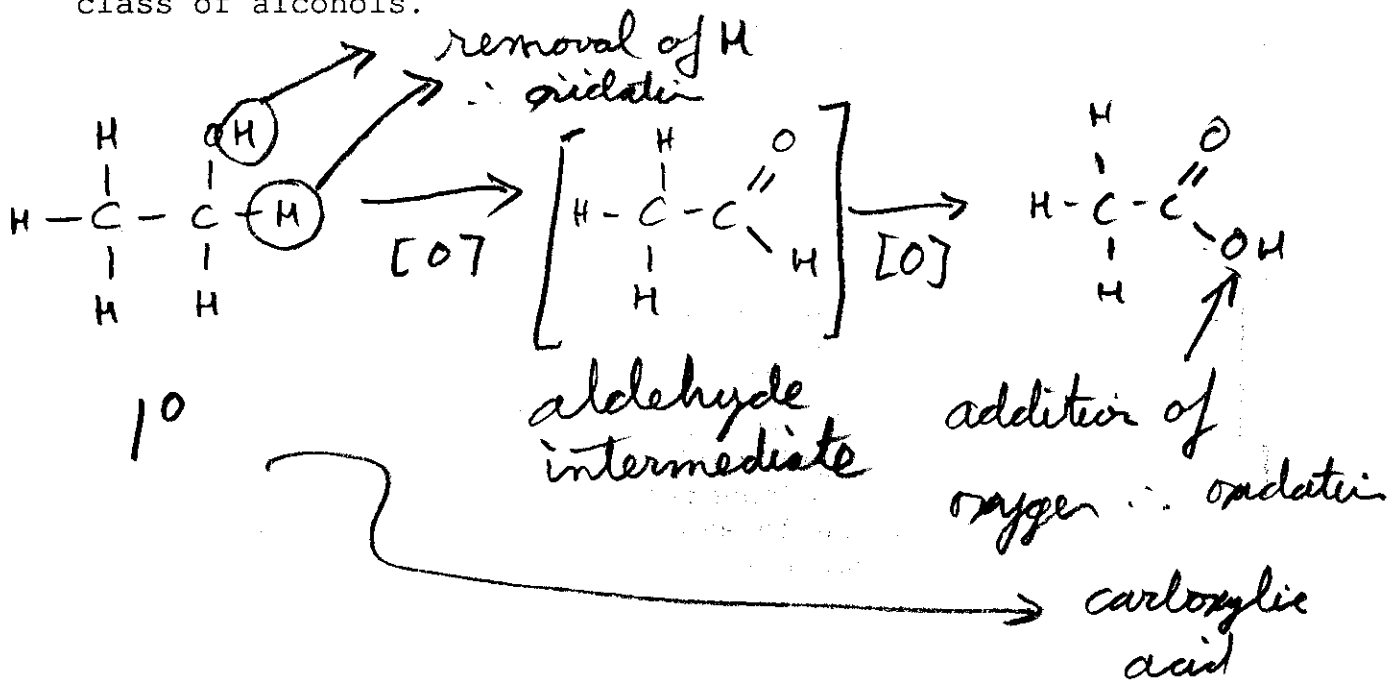 class of alcohols.
removal of H
∴ oxidatin
H OH
H — C — C — H
H H
[O]
H O
H - C - C
H H
[O]
H O
H - C - C
OH
H
1°
aldehyde
intermediate
addition of
oxygen ∴ oxidatin
carboxylic
acid